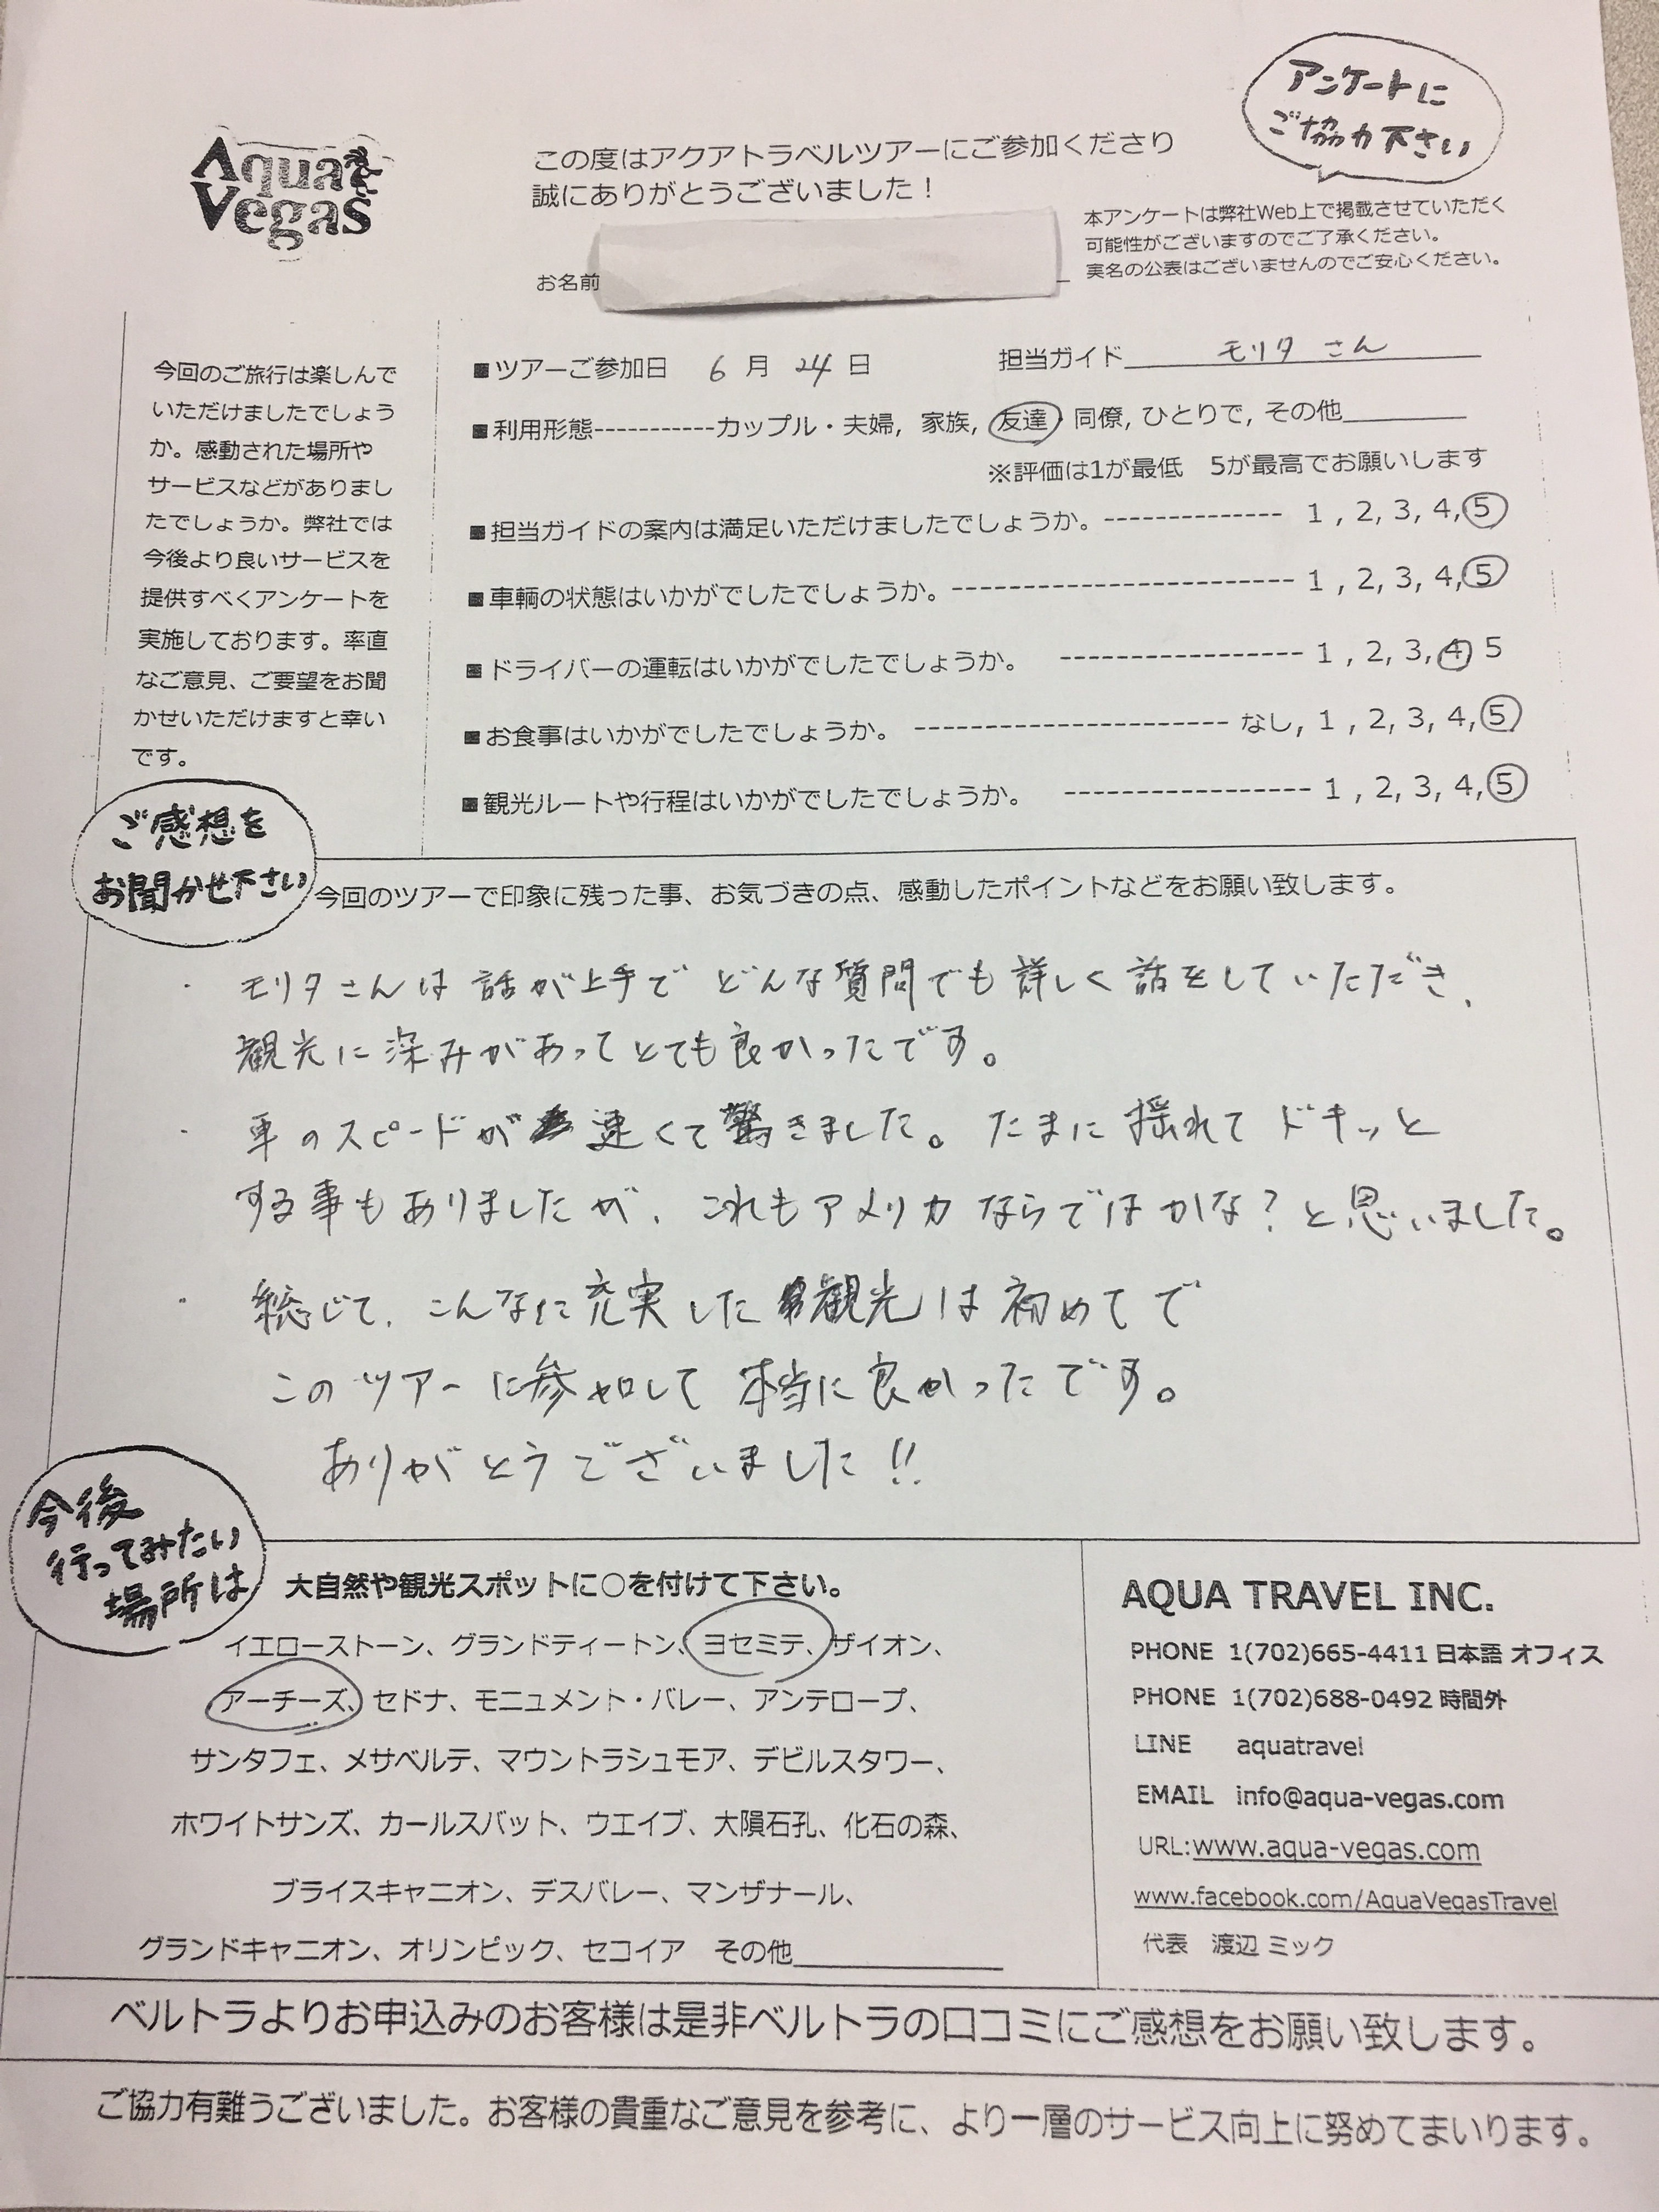 Aqua
Vegas
この度はアクアトラベルツアーにご参加くださり
誠にありがとうございました！
アンケートに
ご協力下さい
本アンケートは弊社Web上で掲載させていただく
可能性がございますのでご了承ください。
実名の公表はございませんのでご安心ください。
お名前
今回のご旅行は楽しんで
いただけましたでしょう
か。感動された場所や
サービスなどがありまし
たでしょうか。弊社では
今後より良いサービスを
提供すべくアンケートを
実施しております。率直
なご意見、ご要望をお聞
かせいただけますと幸い
です。
■ツアーご参加日 6 月 24 日 担当ガイド モリタ さん
■利用形態-----------カップル・夫婦, 家族, 友達・同僚, ひとりで, その他
※評価は1が最低 5が最高でお願いします
■担当ガイドの案内は満足いただけましたでしょうか。-------------- 1 , 2, 3, 4, 5
■車輌の状態はいかがでしたでしょうか。----------------------- 1 , 2, 3, 4, 5
■ドライバーの運転はいかがでしたでしょうか。 ----------------- 1 , 2, 3, 4, 5
■お食事はいかがでしたでしょうか。 --------------------- なし, 1 , 2, 3, 4, 5
■観光ルートや行程はいかがでしたでしょうか。 ----------------- 1 , 2, 3, 4, 5
ご感想を
お聞かせ下さい
今回のツアーで印象に残った事、お気づきの点、感動したポイントなどをお願い致します。
・ モリタさんは話が上手でどんな質問でも詳しく話をしていただき、
観光に深みがあってとても良かったです。
・ 車のスピードが速くて驚きました。たまに揺れてドキッと
する事もありましたが、これもアメリカならではかな？と思いました。
・ 総じて、こんなに充実した観光は初めてで
このツアーに参加して本当に良かったです。
ありがとうございました!!
今後
行ってみたい
場所は
大自然や観光スポットに○を付けて下さい。
イエローストーン、グランドティートン、ヨセミテ、ザイオン、
アーチーズ、セドナ、モニュメント・バレー、アンテロープ、
サンタフェ、メサベルテ、マウントラシュモア、デビルスタワー、
ホワイトサンズ、カールスバット、ウエイブ、大隕石孔、化石の森、
ブライスキャニオン、デスバレー、マンザナール、
グランドキャニオン、オリンピック、セコイア その他
AQUA TRAVEL INC.
PHONE 1(702)665-4411 日本語 オフィス
PHONE 1(702)688-0492 時間外
LINE aquatravel
EMAIL info@aqua-vegas.com
URL:www.aqua-vegas.com
www.facebook.com/AquaVegasTravel
代表 渡辺 ミック
ベルトラよりお申込みのお客様は是非ベルトラの口コミにご感想をお願い致します。
ご協力有難うございました。お客様の貴重なご意見を参考に、より一層のサービス向上に努めてまいります。